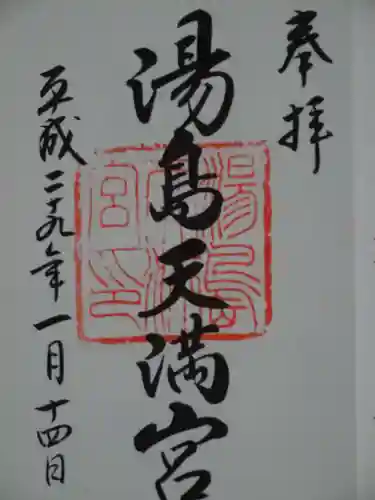 奉拝
湯島天満宮
平成二十九年一月十四日